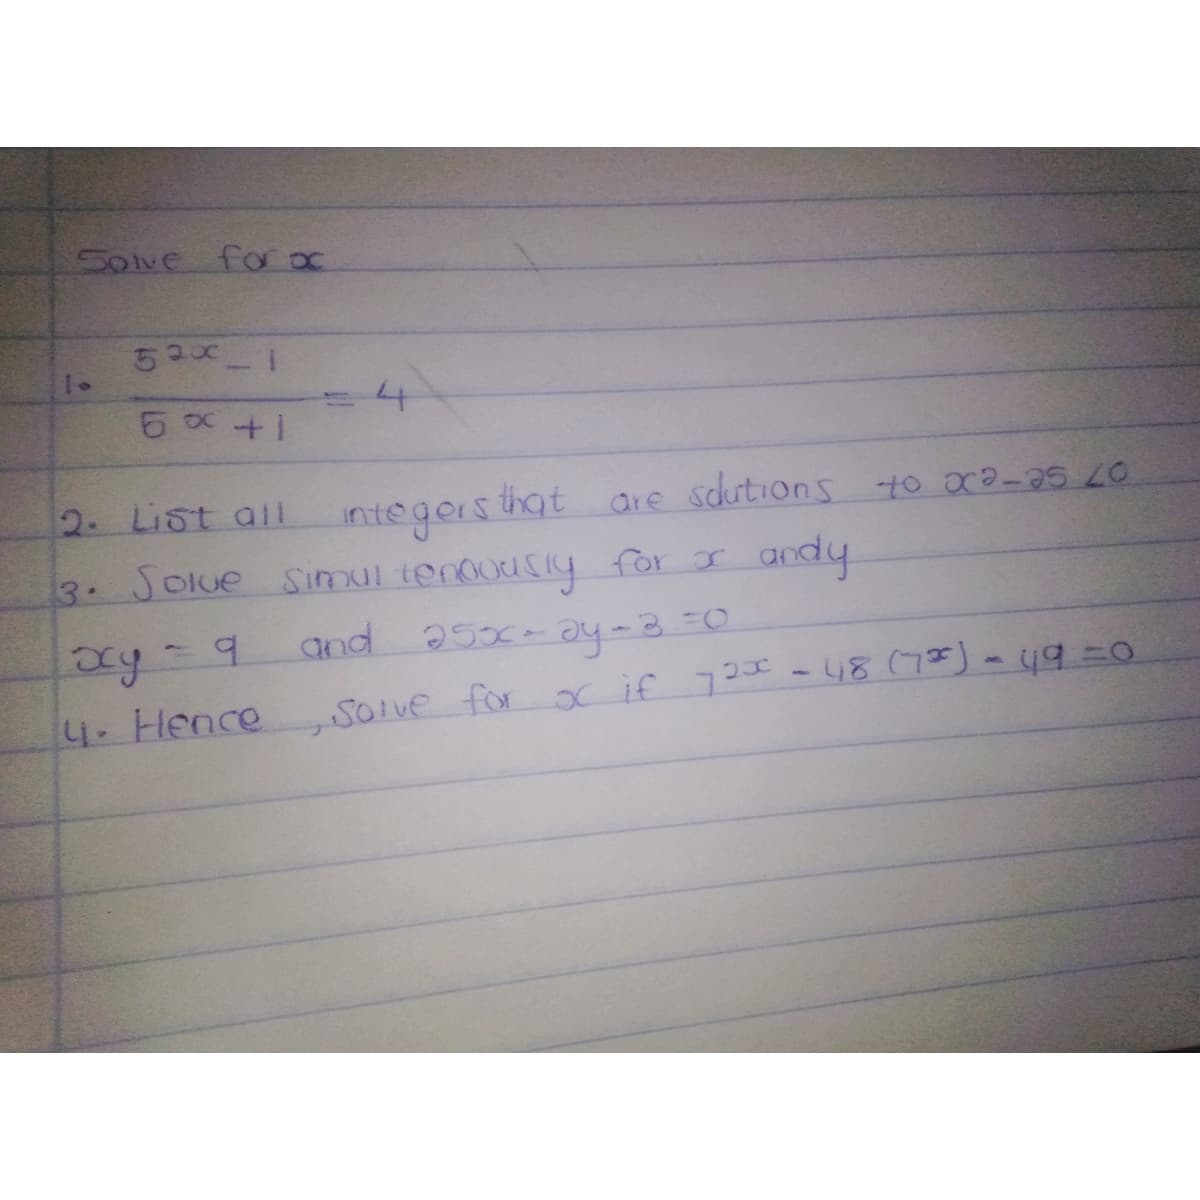 Solve for x
1. 5^2x - 1
= 4
5^x + 1
2. List all integers that are solutions to x2-25 <0
3. Solve simultenouusly for x and y
xy = 9 and 25x - 2y - 3 =0
4. Hence , solve for x if 7^2x - 48 (7^x) - 49 =0